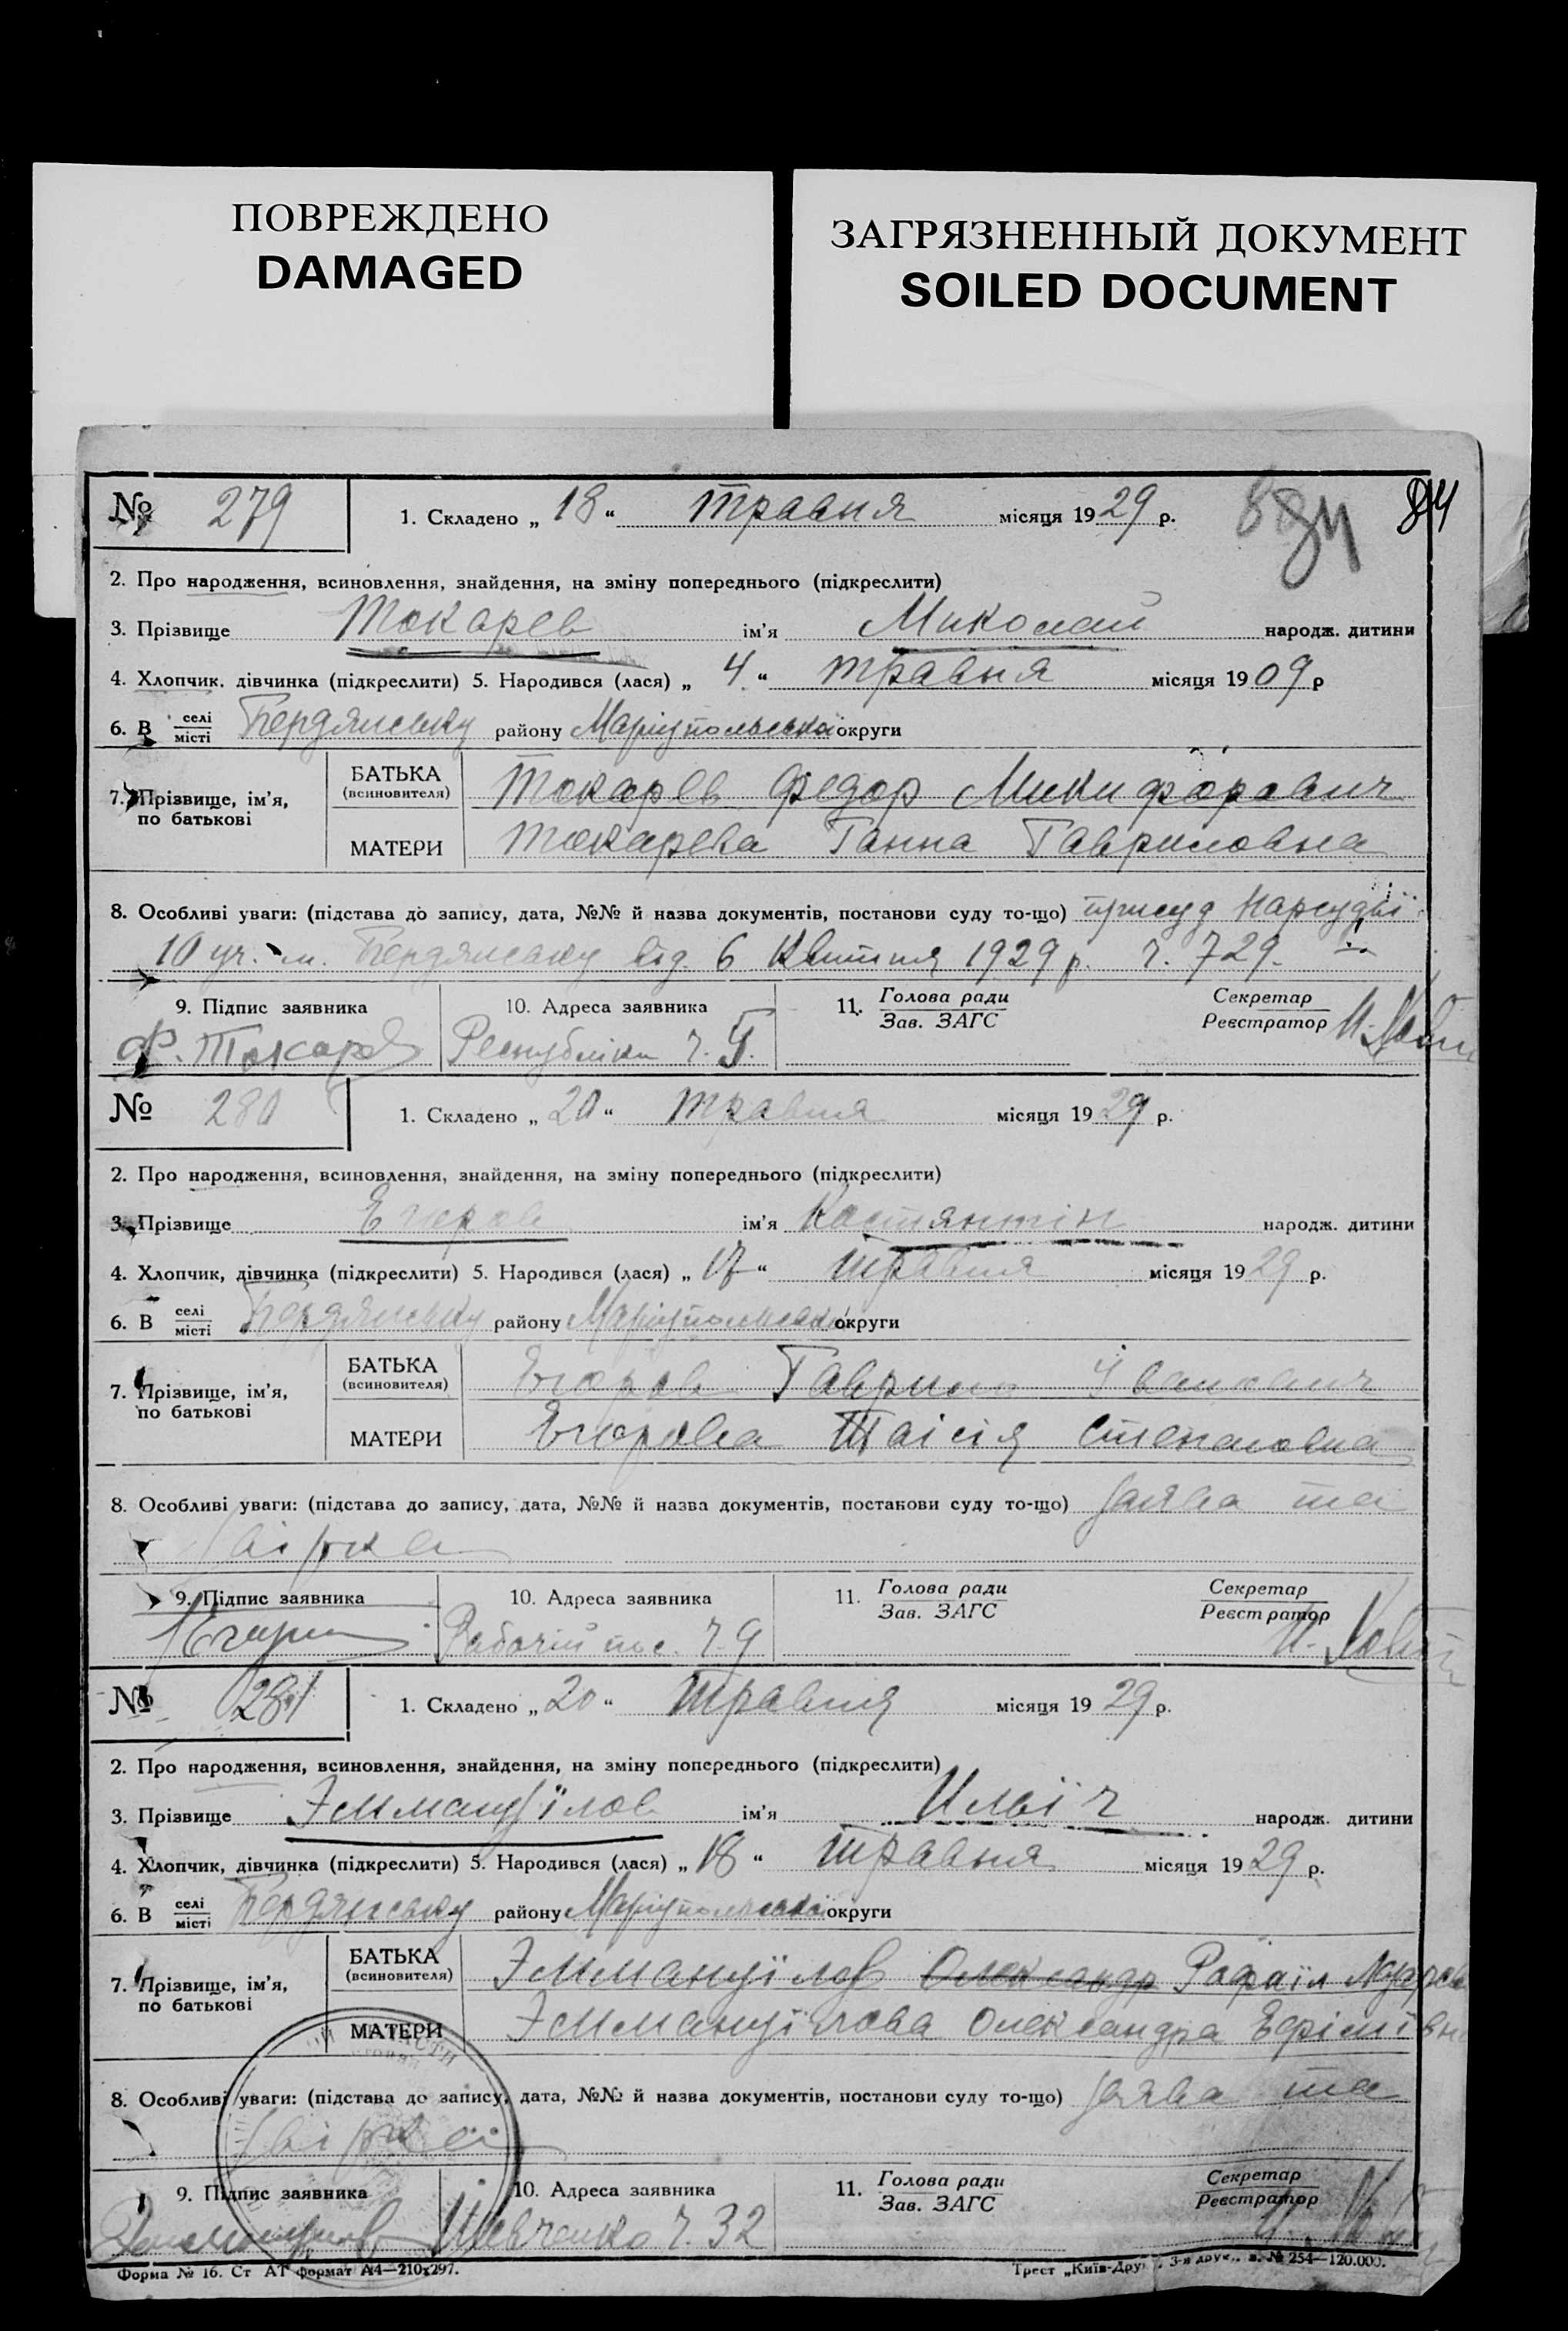 ПОВРЕЖДЕНО
DAMAGED
ЗАГРЯЗНЕННЫЙ ДОКУМЕНТ
SOILED DOCUMENT
№ 279
1. Складено „18“ травня місяця 1929 р.
84
84
2. Про народження, всиновлення, знайдення, на зміну попереднього (підкреслити)
3. Прізвище Токарев ім'я Миколай народж. дитини
4. Хлопчик. дівчинка (підкреслити) 5. Народився (лася) „4“ травня місяця 1909 р
6. В селі/місті Бердянську району Маріупольської округи
7. Прізвище, ім'я, по батькові
БАТЬКА (всиновителя) Токарев Федор Микифорович
МАТЕРИ Токарева Ганна Гавриловна
8. Особливі уваги: (підстава до запису, дата, №№ й назва документів, постанови суду то-що) присуд Нарсудьї
10 уч. м. Бердянську від 6 Квітня 1929 р. ч. 729.
9. Підпис заявника
10. Адреса заявника
11. Голова ради/Зав. ЗАГС
Секретар/Реєстратор
Ф. Токарев Республіки ч. 5.
№ 280
1. Складено „20“ травня місяця 1929 р.
2. Про народження, всиновлення, знайдення, на зміну попереднього (підкреслити)
3. Прізвище Егоров ім'я Костянтін народж. дитини
4. Хлопчик, дівчинка (підкреслити) 5. Народився (лася) „17“ травня місяця 1929 р.
6. В селі/місті Бердянську району Маріупольської округи
7. Прізвище, ім'я, по батькові
БАТЬКА (всиновителя) Егоров Гаврило Іванович
МАТЕРИ Егорова Таісія Степановна
8. Особливі уваги: (підстава до запису, дата, №№ й назва документів, постанови суду то-що) заява та
звірка
9. Підпис заявника
10. Адреса заявника
11. Голова ради/Зав. ЗАГС
Секретар/Реєстратор
Рабочій пос. ч. 9
№ 281
1. Складено „20“ травня місяця 1929 р.
2. Про народження, всиновлення, знайдення, на зміну попереднього (підкреслити)
3. Прізвище Эммануїлов ім'я Ильїч народж. дитини
4. Хлопчик, дівчинка (підкреслити) 5. Народився (лася) „18“ травня місяця 1929 р.
6. В селі/місті Бердянську району Маріупольської округи
7. Прізвище, ім'я, по батькові
БАТЬКА (всиновителя) Эммануїлов Олександр Рафаїл
МАТЕРИ Эммануїлова Олександра Ефімівна
8. Особливі уваги: (підстава до запису, дата, №№ й назва документів, постанови суду то-що) заява та
звірка
9. Підпис заявника
10. Адреса заявника
11. Голова ради/Зав. ЗАГС
Секретар/Реєстратор
Шевченко ч. 32
Форма № 16. Ст АТ формат А4—210х297.
Трест „Київ-Друк“, 3-я друк., з. № 254—120.000.